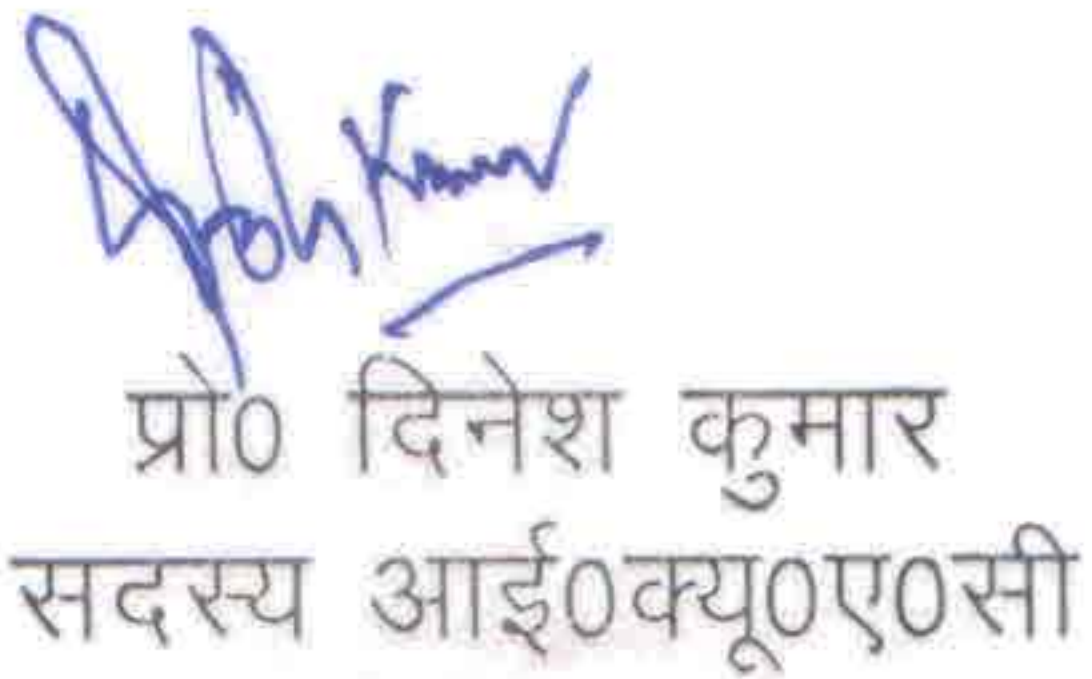 Kumar
प्रो0 दिनेश कुमार
सदस्य आई0क्यू0ए0सी